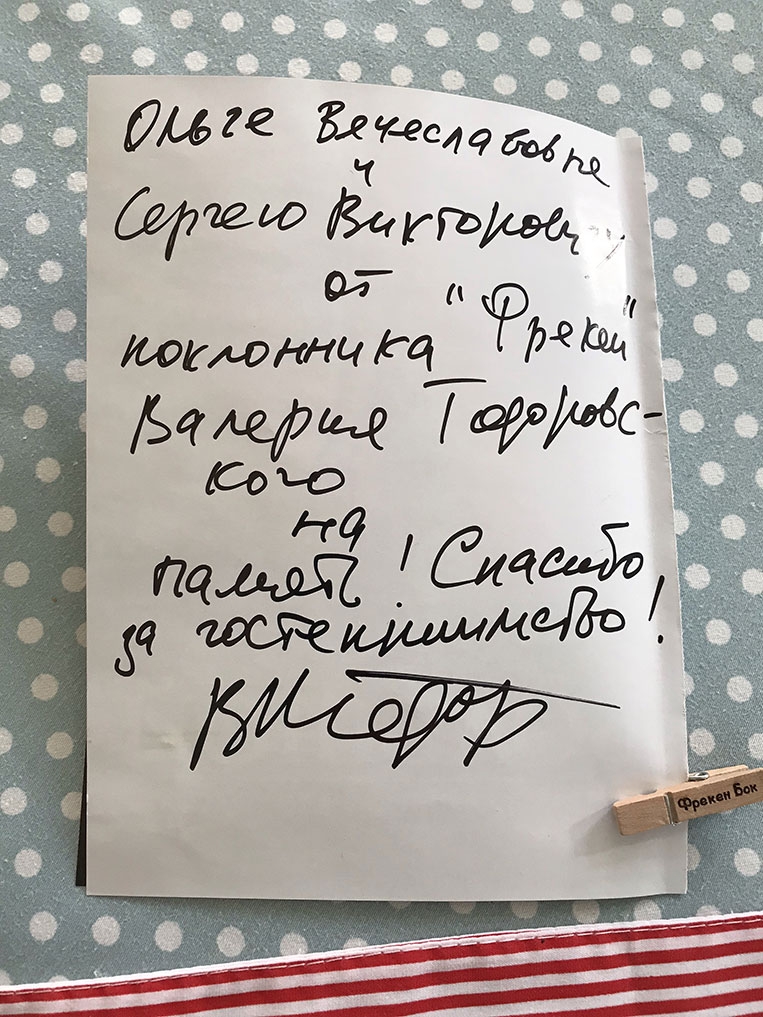 Ольге Вячеславовне
и
Сергею Викторовичу
от
поклонника "Фрекен"
Валерия Тодоровс-
кого
на
память! Спасибо
за гостеприимство!
Фрекен Бок